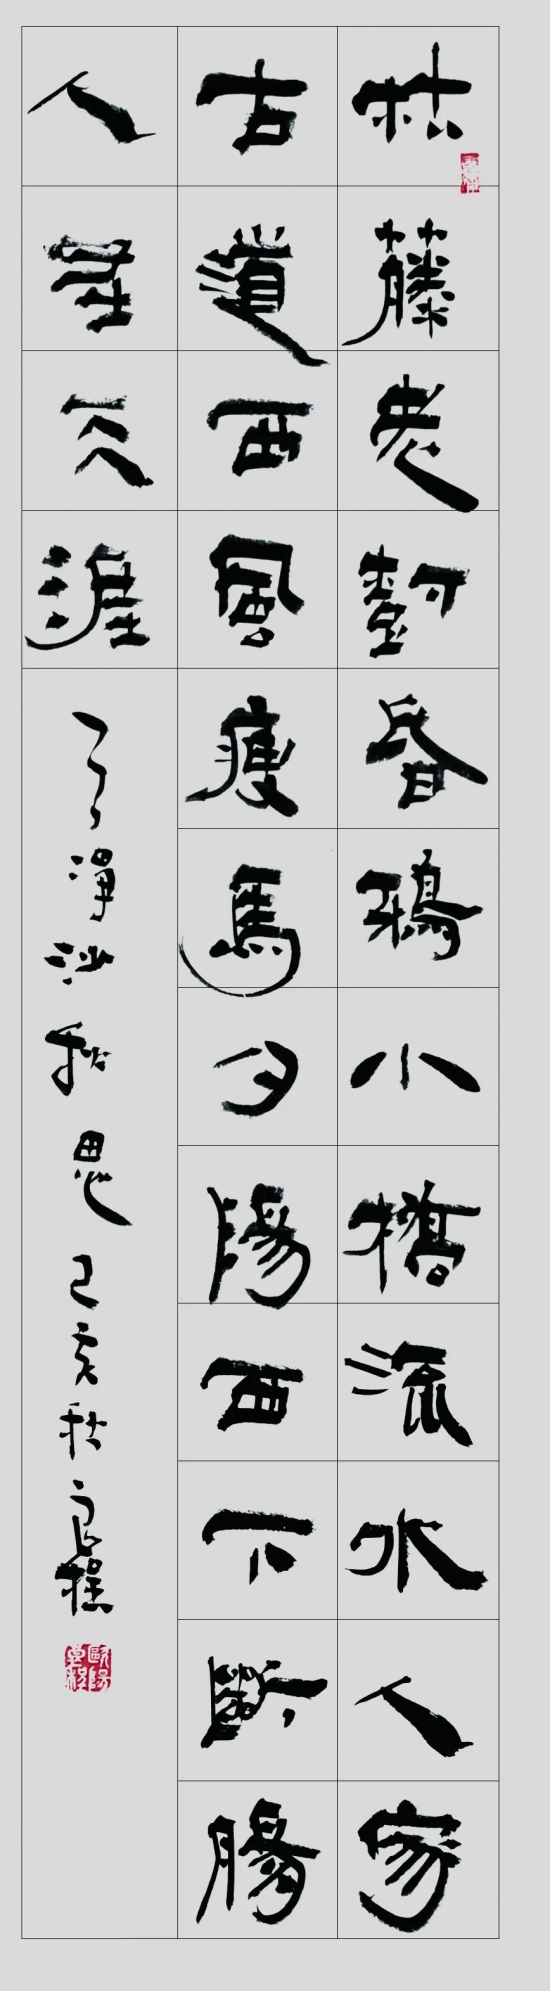 枯藤老樹昏鴉小橋流水人家
古道西風瘦馬夕陽西下斷腸
人在天涯
淨沙秋思己亥秋良程
歐陽